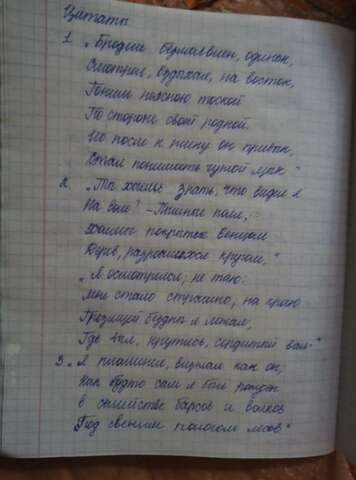 Цитаты
1. „Бродил безмолвен, одинок,
Смотрел, вздыхая, на восток,
Томим неясною тоской
По стороне своей родной.
Но после к плену он привык,
Стал понимать чужой язык"
2. „Ты хочешь знать, что видел я
На воле? - Пышные поля,
Холмы покрытые венцом
Дерев, разросшихся кругом,"
„Я осмотрелся; не таю:
Мне стало страшно, на краю
Грозящей бездны я лежал,
Где выл, крутясь, сердитый вал."
3. „Я пламенел, визжал как он;
Как будто сам я был рожден
в семействе барсов и волков
Под свежим пологом лесов"